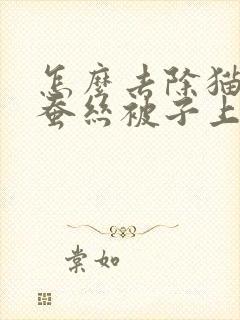 怎麼去除猫
蚕絲被子上
棠如